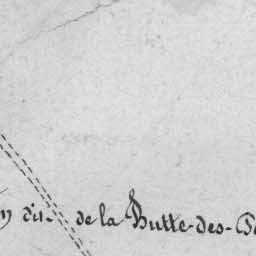 dit de la Butte-des-